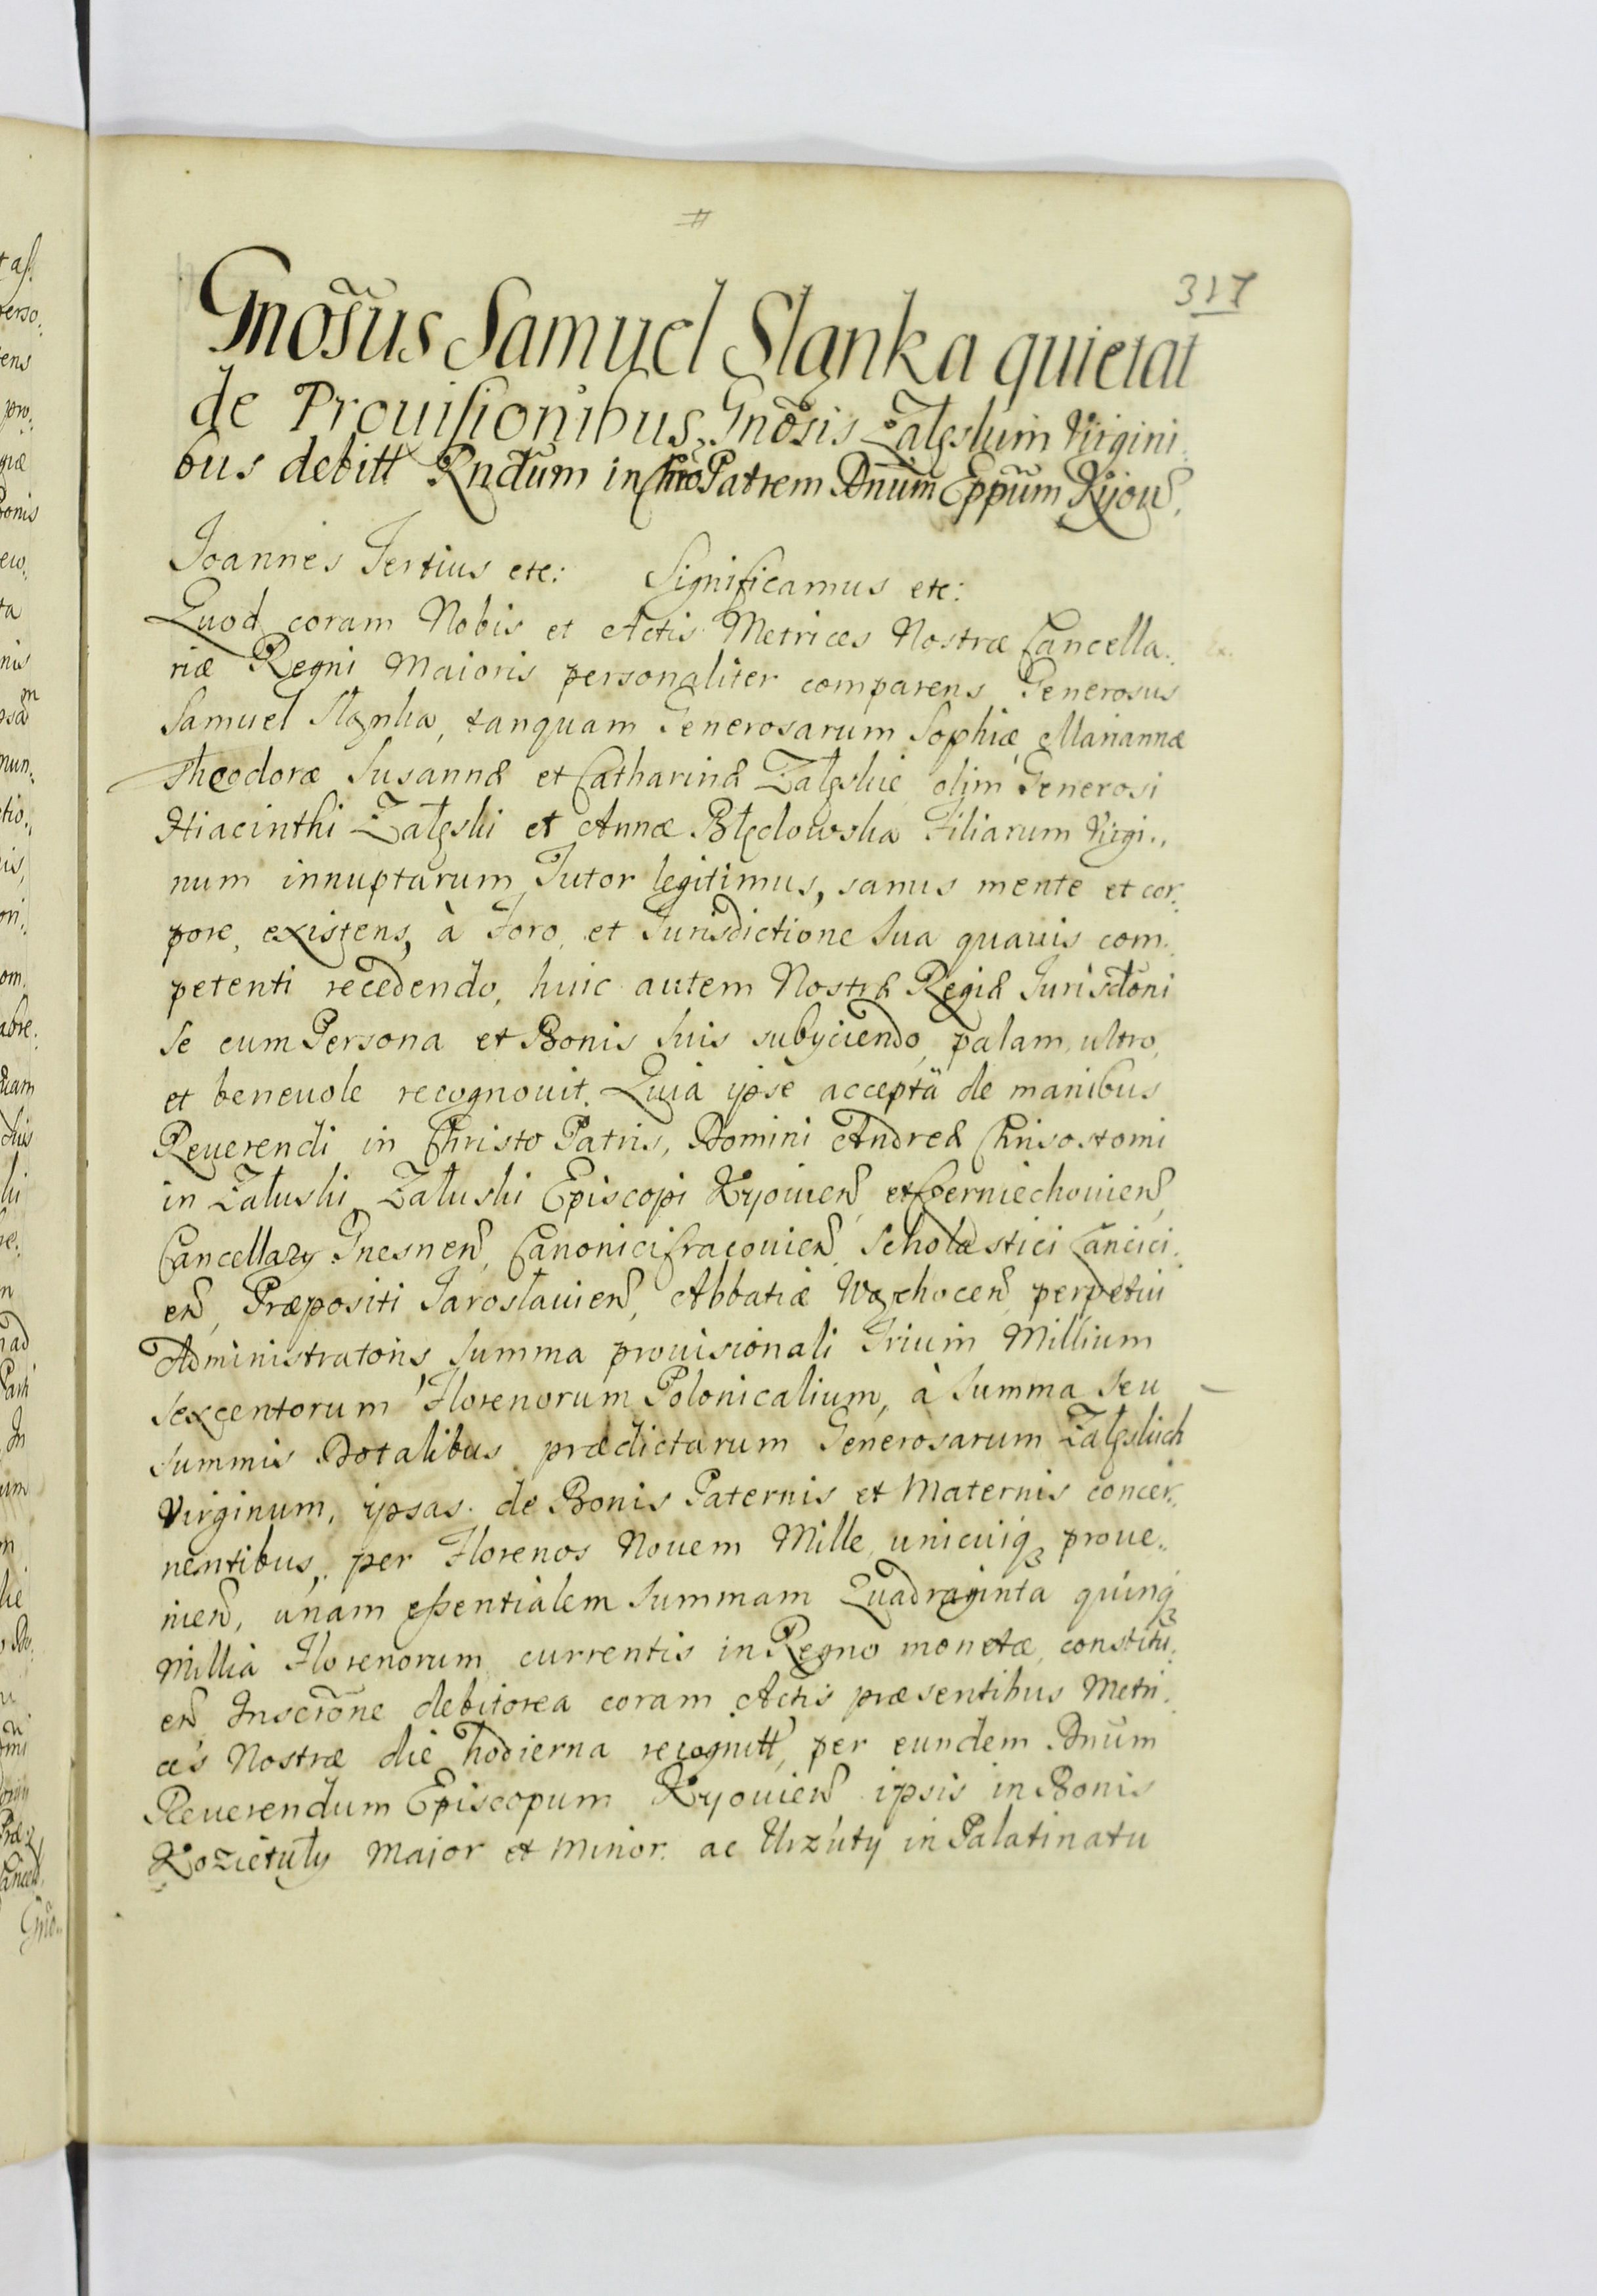 317
Gnõsus Samuel Slanka quietat
de Prouisionibus Gnõsis Załęskim Virgini
bus debitt Rndum in Chro Patrem Dnum Eppum Kijoun.
Ioannes Tertius etc: Significamus etc:
Quod coram Nobis et Actis Metrices Nostræ Cancella..
riæ Regni Maioris personaliter comparens Generosus
Samuel Slanka, tanquam Generosarum Sophiæ Mariannæ
Theodoræ Susannæ et Catharinæ Załęskie olim Generosi
Hiacinthi Załęski et Annæ Błędowska Filiarum Virgi..
num innuptarum Tutor legitimus, sanus mente et cor:
pore existens, à Foro et Iurisdictione Sua quauis com:
petenti recedendo, huic autem Nostræ Regiæ Iurisdtõni
Se cum Persona et Bonis suis subyciendo, palam, ultro,
et beneuole recognouit. Quia ipse accepta de manibus
Reuerendi in Christo Patris, Domini Andreæ Chrisostomi
in Załuski Załuski Episcopi Kyouien et Czerniechouien,
Cancellary Gnesnen, Canonici Cracouien, Scholastici Lancici.
en, Præpositi Jarosławien, Abbatiæ Wąchocen perpetui
Administratoris Summa prouisionali Trium Millium
Sexcentorum Florenorum Polonicalium, à Summa Seu
Summis Dotalibus prædictarum Generosarum Załęskich
Virginum, ipsas de Bonis Paternis et Maternis concer..
nentibus, per Florenos Nouem Mille unicuiq3 proue..
nien, unam essentialem Summam Quadraginta quinq3
Millia Florenorum currentis in Regno monetæ, constitu:
en Inscrõne debitorea coram Actis præsentibus Metri.
ces Nostræ die hodierna recognitt, per eundem Dnum
Reuerendum Episcopum Kyouien ipsis in Bonis
Kozietuły Major et Minor: ac Urzuty in Palatinatu